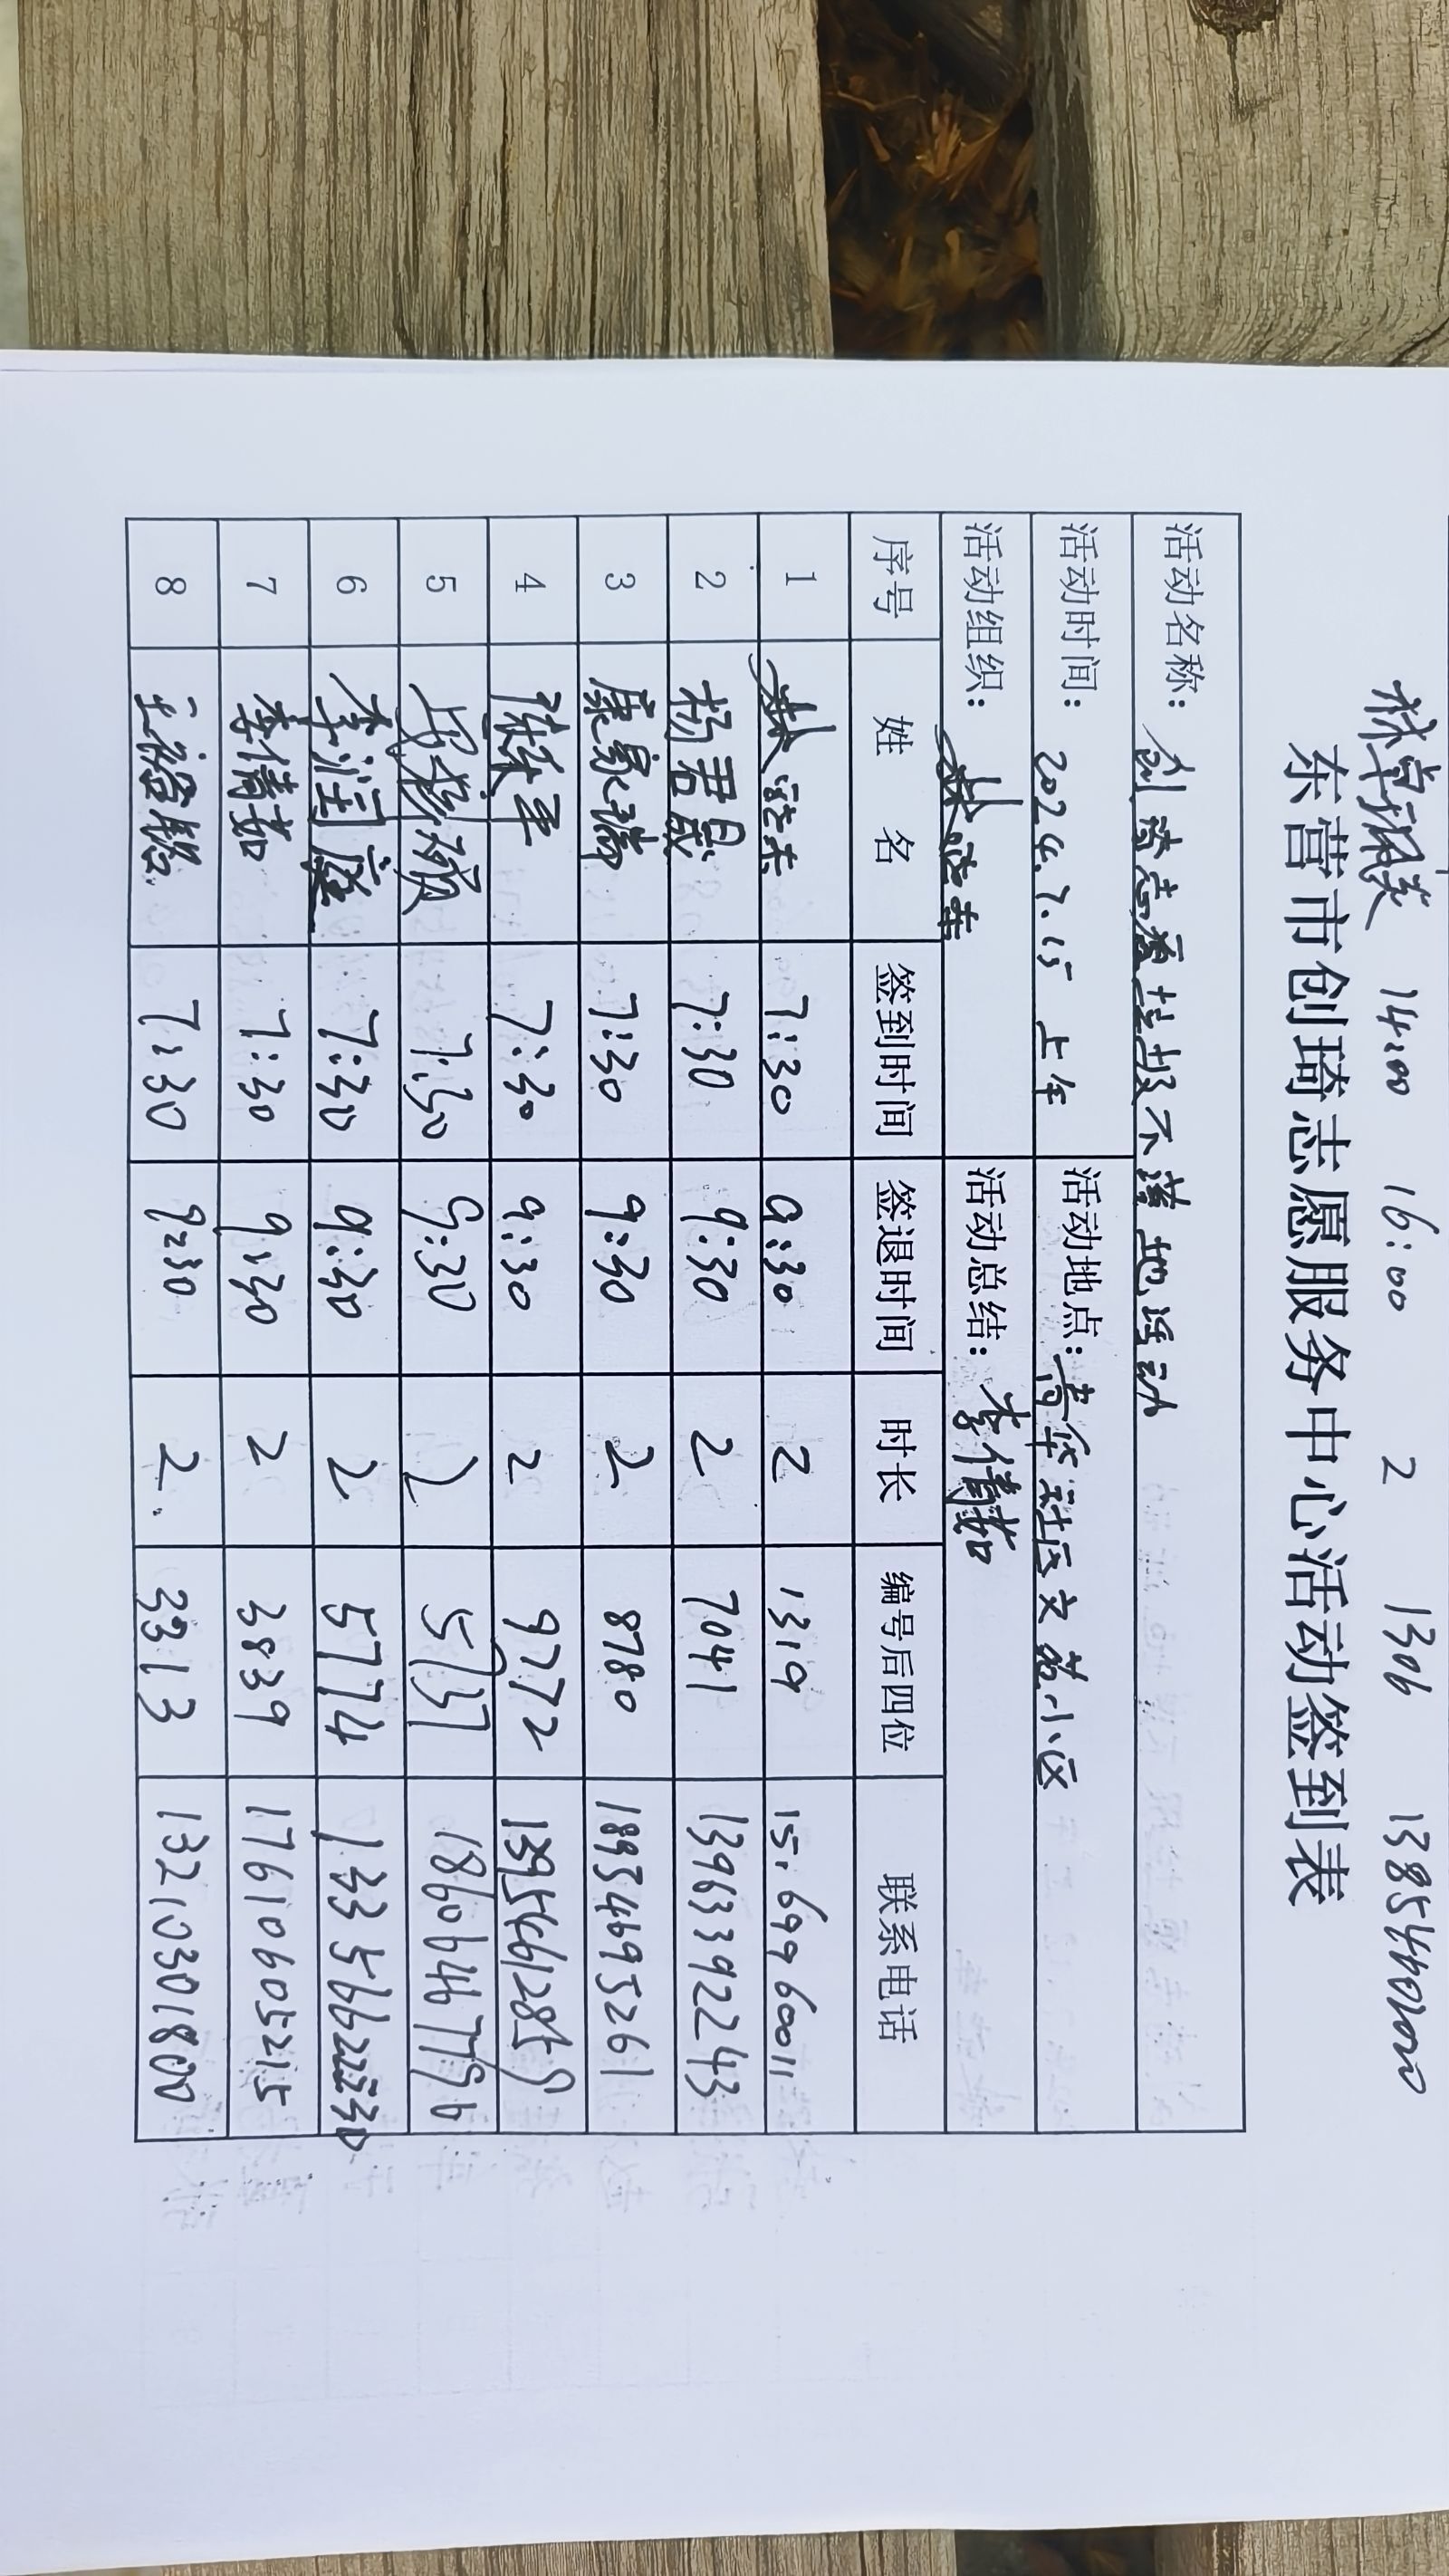 14:00 16:00 2 1306
东营市创琦志愿服务中心活动签到表
活动名称: 创琦志愿垃圾不落地活动
活动时间: 2024.7.15 上午 活动地点: 青华社区文苑小区
活动组织: 活动总结: 李倩茹
序号 姓 名 签到时间 签退时间 时长 编号后四位 联系电话
1 7:30 9:30 2 1319 15169960011
2 杨君晟 7:30 9:30 2 7041 13963392243
3 康家瑞 7:30 9:30 2 8780 18934695261
4 7:30 9:30 2 9772 13954612859
5 7:30 9:30 2 5737 18606467796
6 李润庭 7:30 9:30 2 5774
7 李倩茹 7:30 9:30 2 3839 17610605215
8 7:30 9:30 2. 3313 13210301800